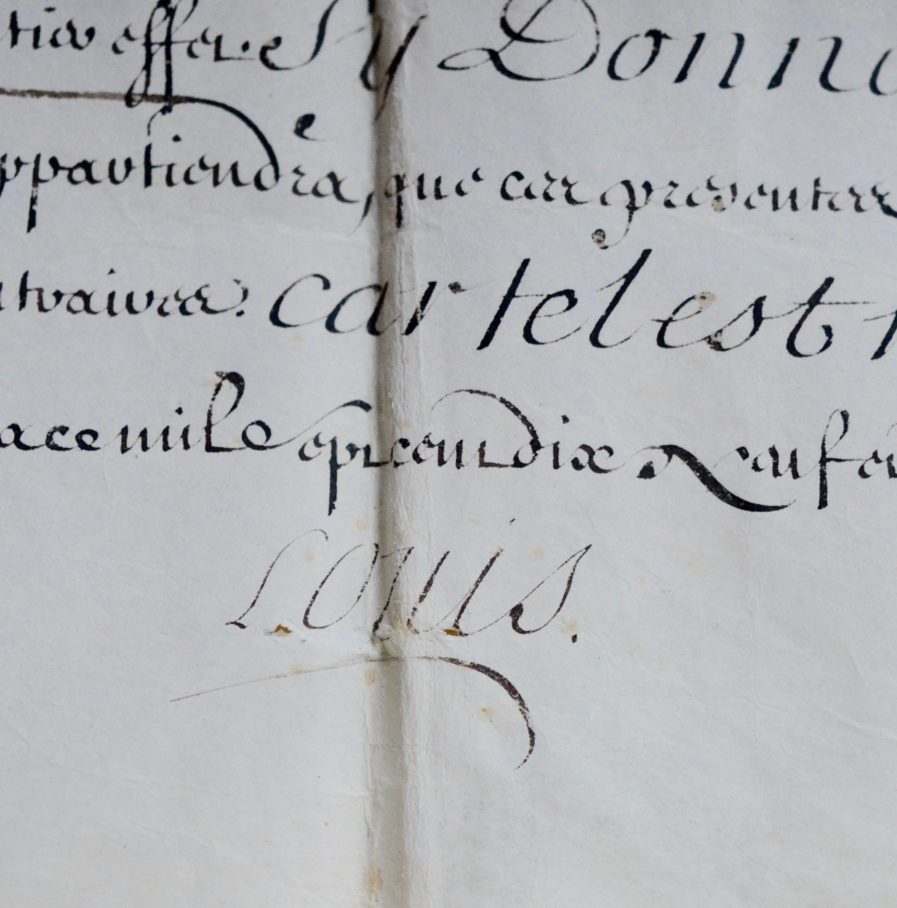 effet Sy Donn
ppartiendra, que ces presentes
traires. Car tel est
ace mil sept cent dix Neuf
Louis.